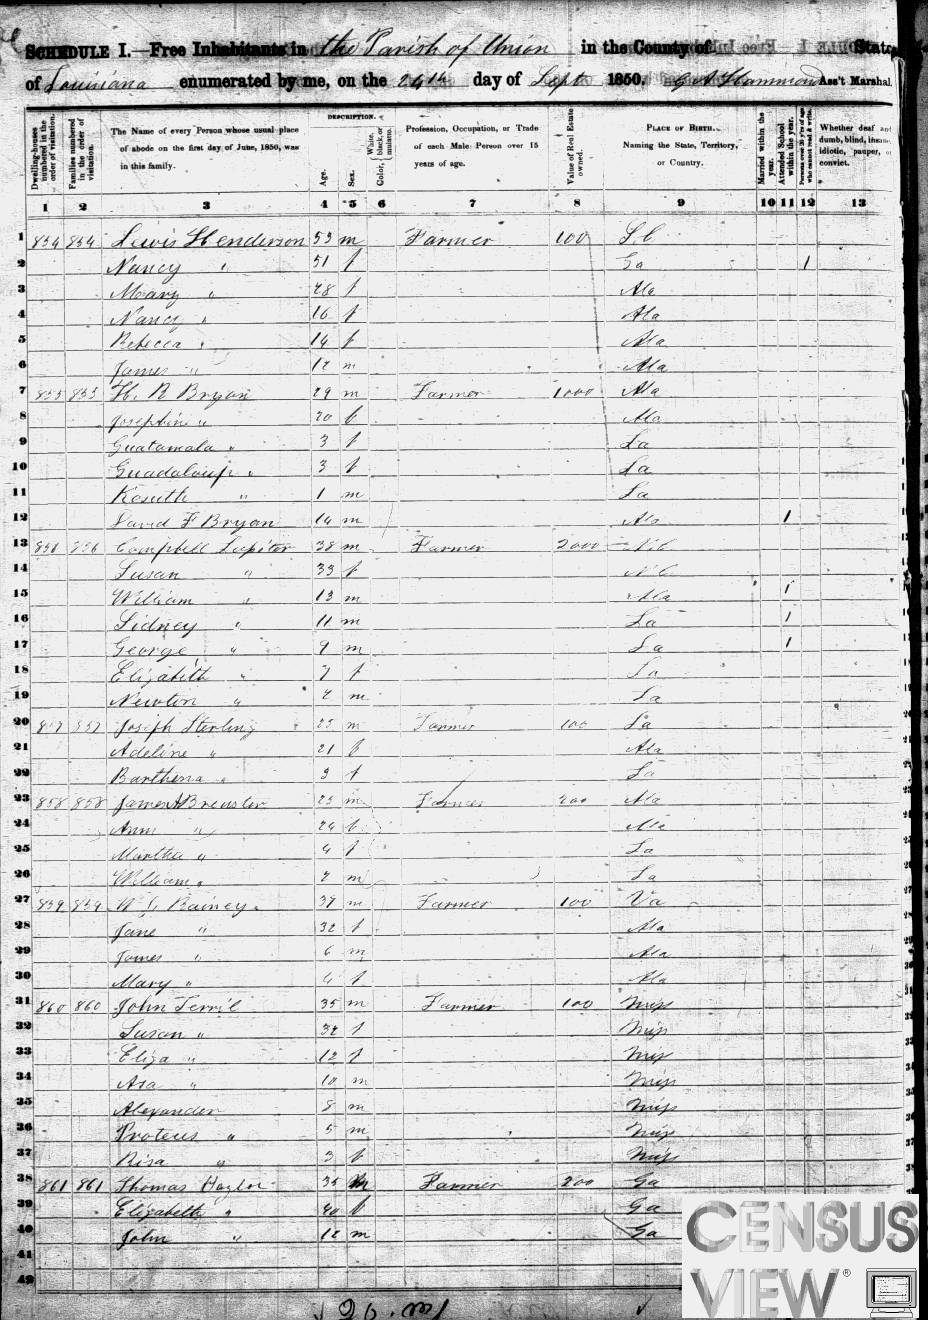 SCHEDULE I.—Free Inhabitants in the Parish of Union in the County of State
of Louisiana enumerated by me, on the 24th day of Sept 1850. Ass't Marshal.
Dwelling-houses numbered in the order of visitation.
Families numbered in the order of visitation.
The Name of every Person whose usual place of abode on the first day of June, 1850, was in this family.
DESCRIPTION.
Age.
Sex.
Color, White, black, or mulatto.
Profession, Occupation, or Trade of each Male Person over 15 years of age.
Value of Real Estate owned.
PLACE OF BIRTH. Naming the State, Territory, or Country.
Married within the year.
Attended School within the year.
Persons over 20 y'rs of age who cannot read & write.
Whether deaf and dumb, blind, insane, idiotic, pauper, or convict.
1 2 3 4 5 6 7 8 9 10 11 12 13
1 854 854 Lewis Henderson 53 m Farmer 100 S.C
2 Nancy " 51 f Ga 1
3 Mary " 28 f Ala
4 Nancy " 16 f Ala
5 Rebecca " 14 f Ala
6 James " 12 m Ala
7 855 855 H. R Bryan 29 m Farmer 1000 Ala
8 Josephine " 20 f Ala
9 Guatamala " 3 f La
10 Guadaloup " 3 f La
11 Kosuth " 1 m La
12 David F Bryan 14 m Ala 1
13 856 856 Campbell Lupiter 38 m Farmer 2000 N.C
14 Susan " 33 f N.C.
15 William " 13 m Ala 1
16 Sidney " 11 m La 1
17 George " 9 m La 1
18 Elizabeth " 7 f La
19 Newton " 2 m La
20 857 857 Joseph Sterling 25 m Farmer 100 La
21 Adeline " 21 f Ala
22 Barthena " 3 f La
23 858 858 James A Brewster 25 m Farmer 200 Ala
24 Ann " 24 f Ala
25 Martha " 4 f La
26 William " 2 m La
27 859 859 W. G Bainey 38 m Farmer 100 Va
28 Jane " 32 f Ala
29 James " 6 m Ala
30 Mary " 4 f Ala
31 860 860 John Terril 35 m Farmer 100 Miss
32 Susan " 32 f Miss
33 Eliza " 12 f Miss
34 Asa " 10 m Miss
35 Alexander 8 m Miss
36 Proteus " 5 m Miss
37 Risa " 3 f Miss
38 861 861 Thomas Hazlor 35 m Farmer 200 Ga
39 Elizabeth " 40 f Ga
40 John " 12 m Ga
41
42
CENSUS
VIEW®